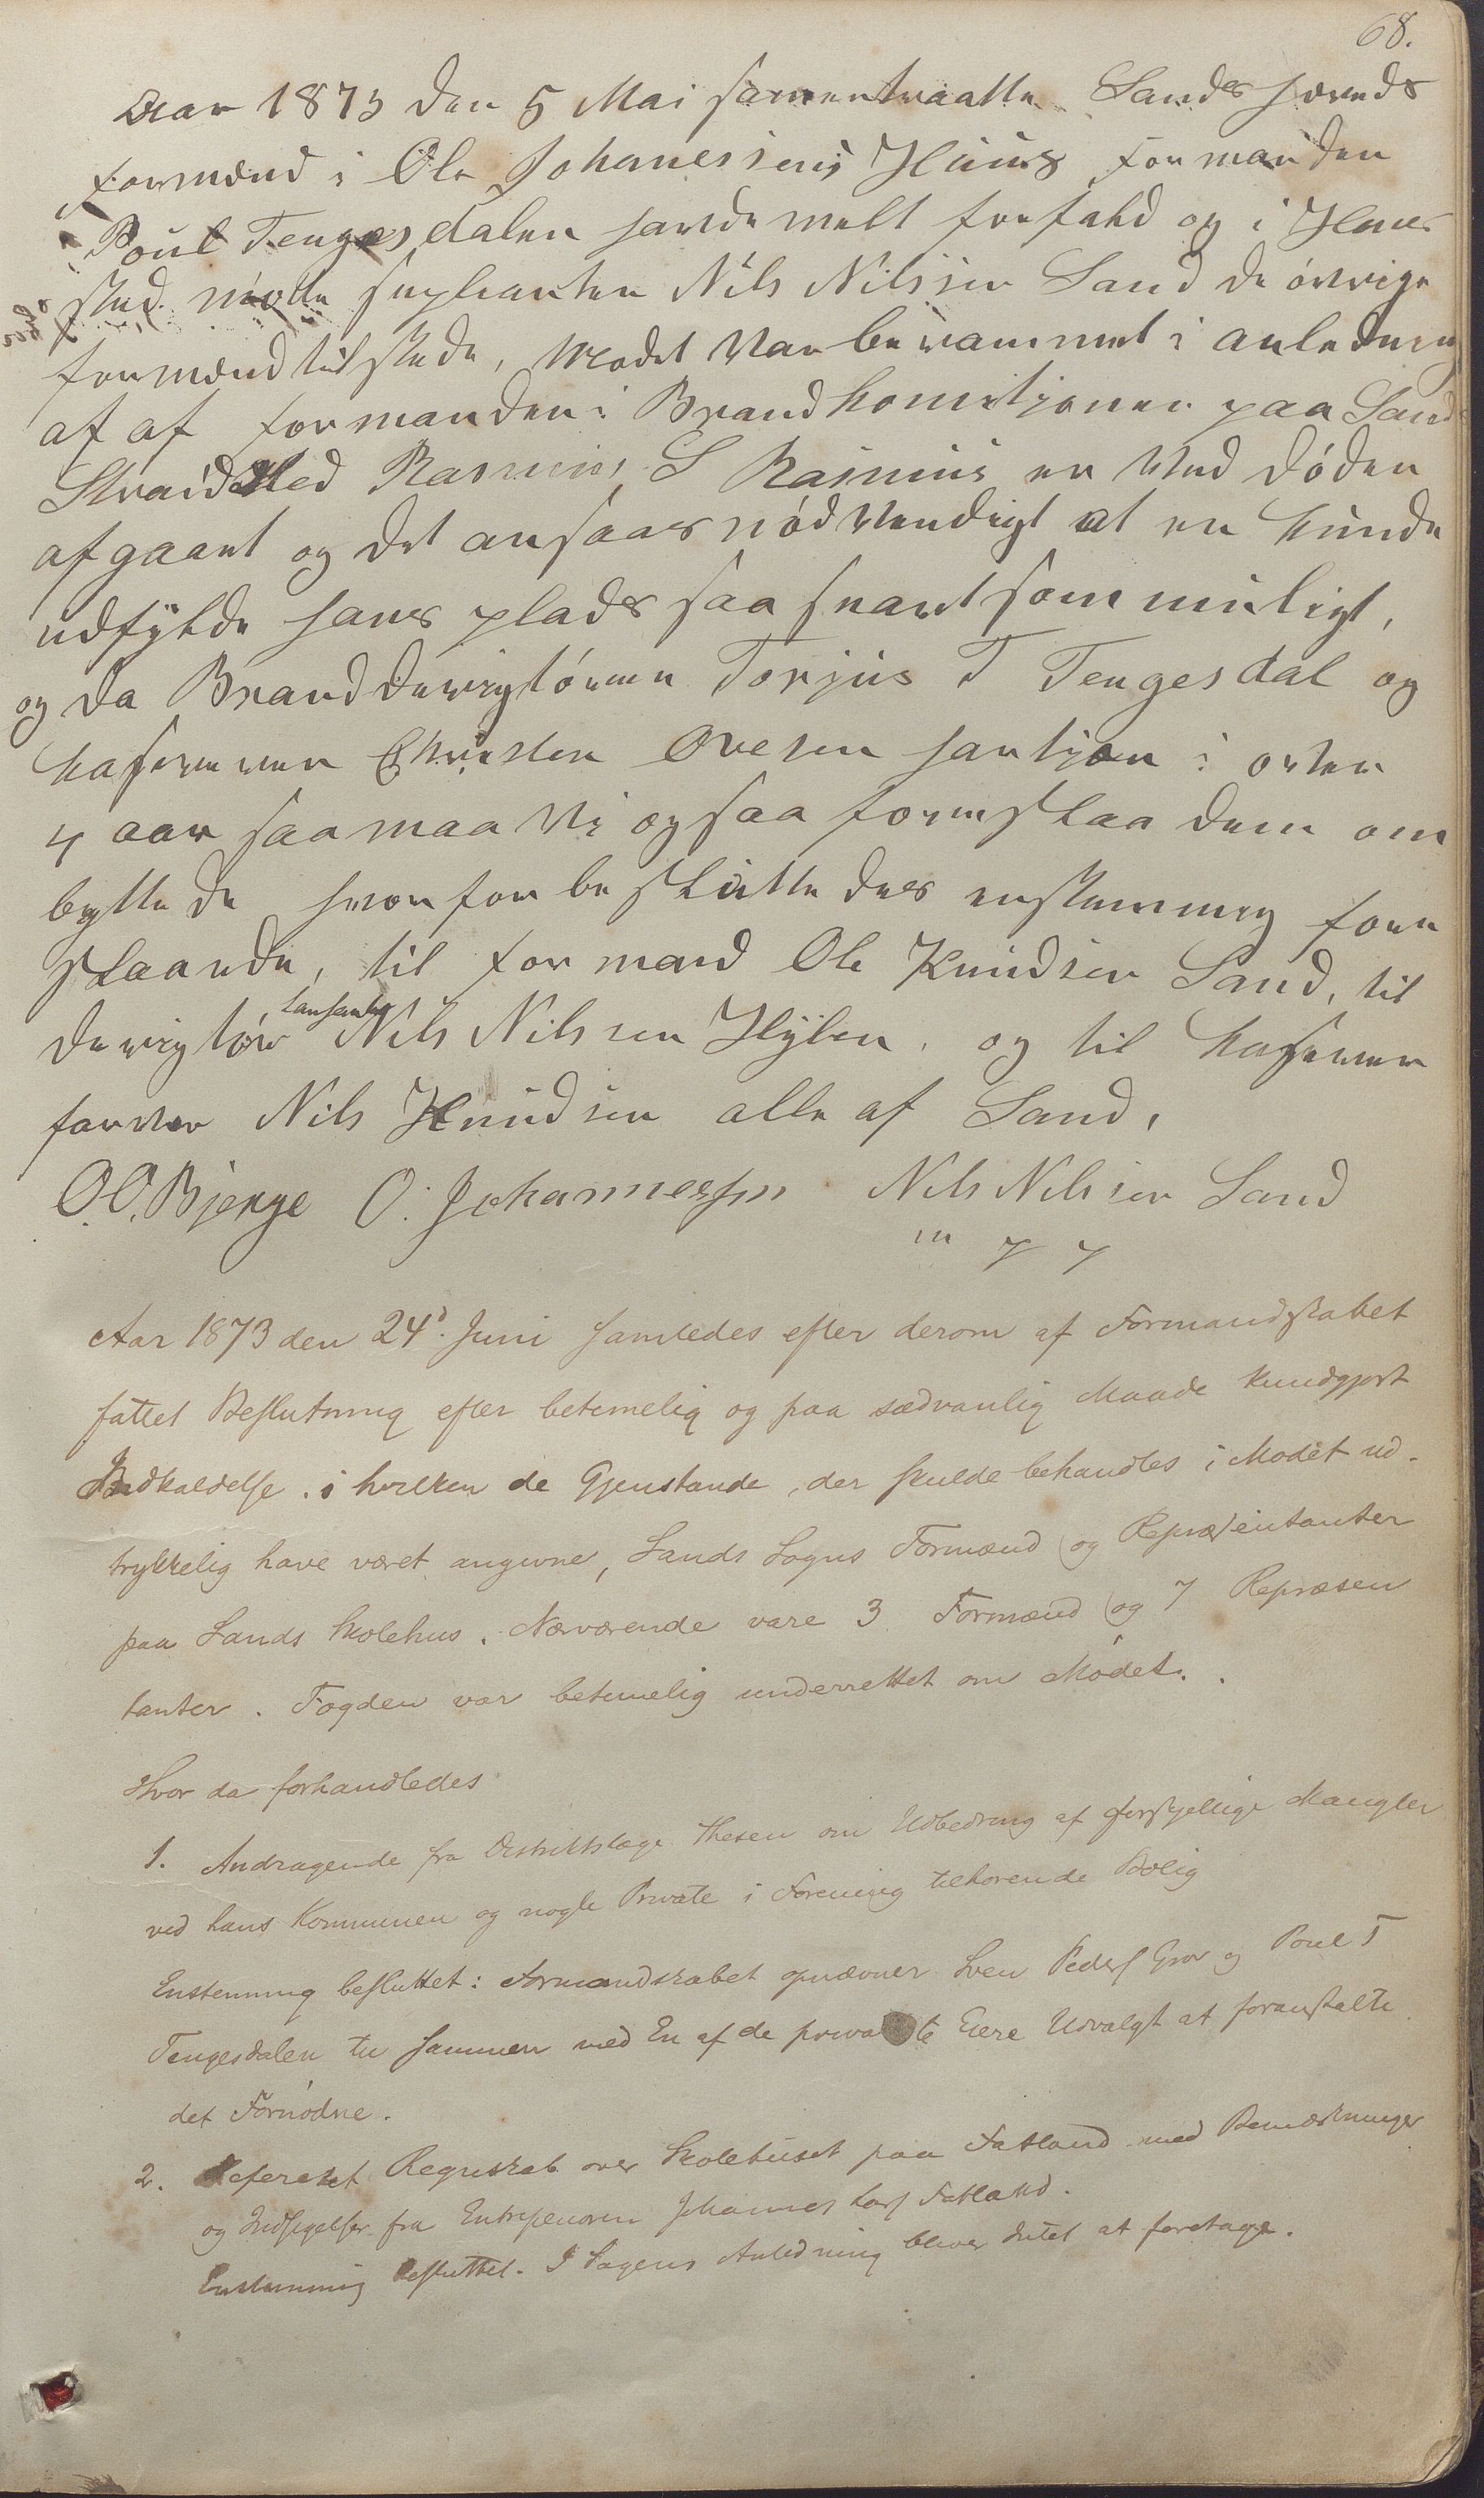 68.
Aar 1873 den 5 Mai sammentraatte Sands Hereds
formænd i Ole Johanesens Huus formanden
Poul Tengesdalen havde melt forfald og i Hans
sted mötte suplianten Nils Nilssen Sand de övrige
formænd tilstede, Mödet var berammet i anledning
af af formanden i Brandkomitjonen paa Sand
Strandsted Rasmus S Rasmus er ved döden
afgaaet og det ansaaes nödvendigt at en kunde
udfylde hans plads saa snart som muligt,
og da Branddirigtören Torjus T Tengesdal og
kaserer Christen Ovesen har tjent i over
4 aar saa maa vi ogsaa foreslaa dem om
byttede hvorfor besluttedes enstemmig fore
slaaende, til formand Ole Knudsen Sand, til
dirigtör Nils Nilssen Hylen, og til kaserer
Nils Knudsen alle af Sand,
O.O. Bjerge O. Johannessen Nils Nilssen Sand
Aar 1873 den 24d. Juni samledes efter derom af Formandskabet
fattet Beslutning efter betimelig og paa sædvanlig Maade kundgjort
Indkaldelse, i hvilken de Gjenstande, der skulde behandles i Modet ud-
trykkelig have været angivne, Sands Sogns Formænd og Repræsentanter
paa Sands Skolehus. Nærværende vare 3 Formænd og 7 Repræsen
tanter. Fogden var betimelig underrettet om Mödet.
Hvor da forhandledes
1. Andragende fra Distriktslæge Thesen om Udbedring af forskjellige Mangler
ved hans Kommunen og nogle Private i Forening tilhorende Bolig
Enstemmig besluttet: Formandskabet opnævner Sven Peders Grov og Poul T
Tengesdalen til sammen med En af de private Eiere Udvalgt at foranstalte
det Fornödne.
2. Refereret Regnskab over Skolehuset paa Fatland med Bemærkninger
og Indsigelser fra Entrepenoren Johannes Lars Fatland.
Enstemmig Besluttet. I Sagens Anledning bliver Intet at foretage.